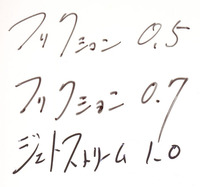 フリクション 0.5
フリクション 0.7
ジェットストリーム 1.0